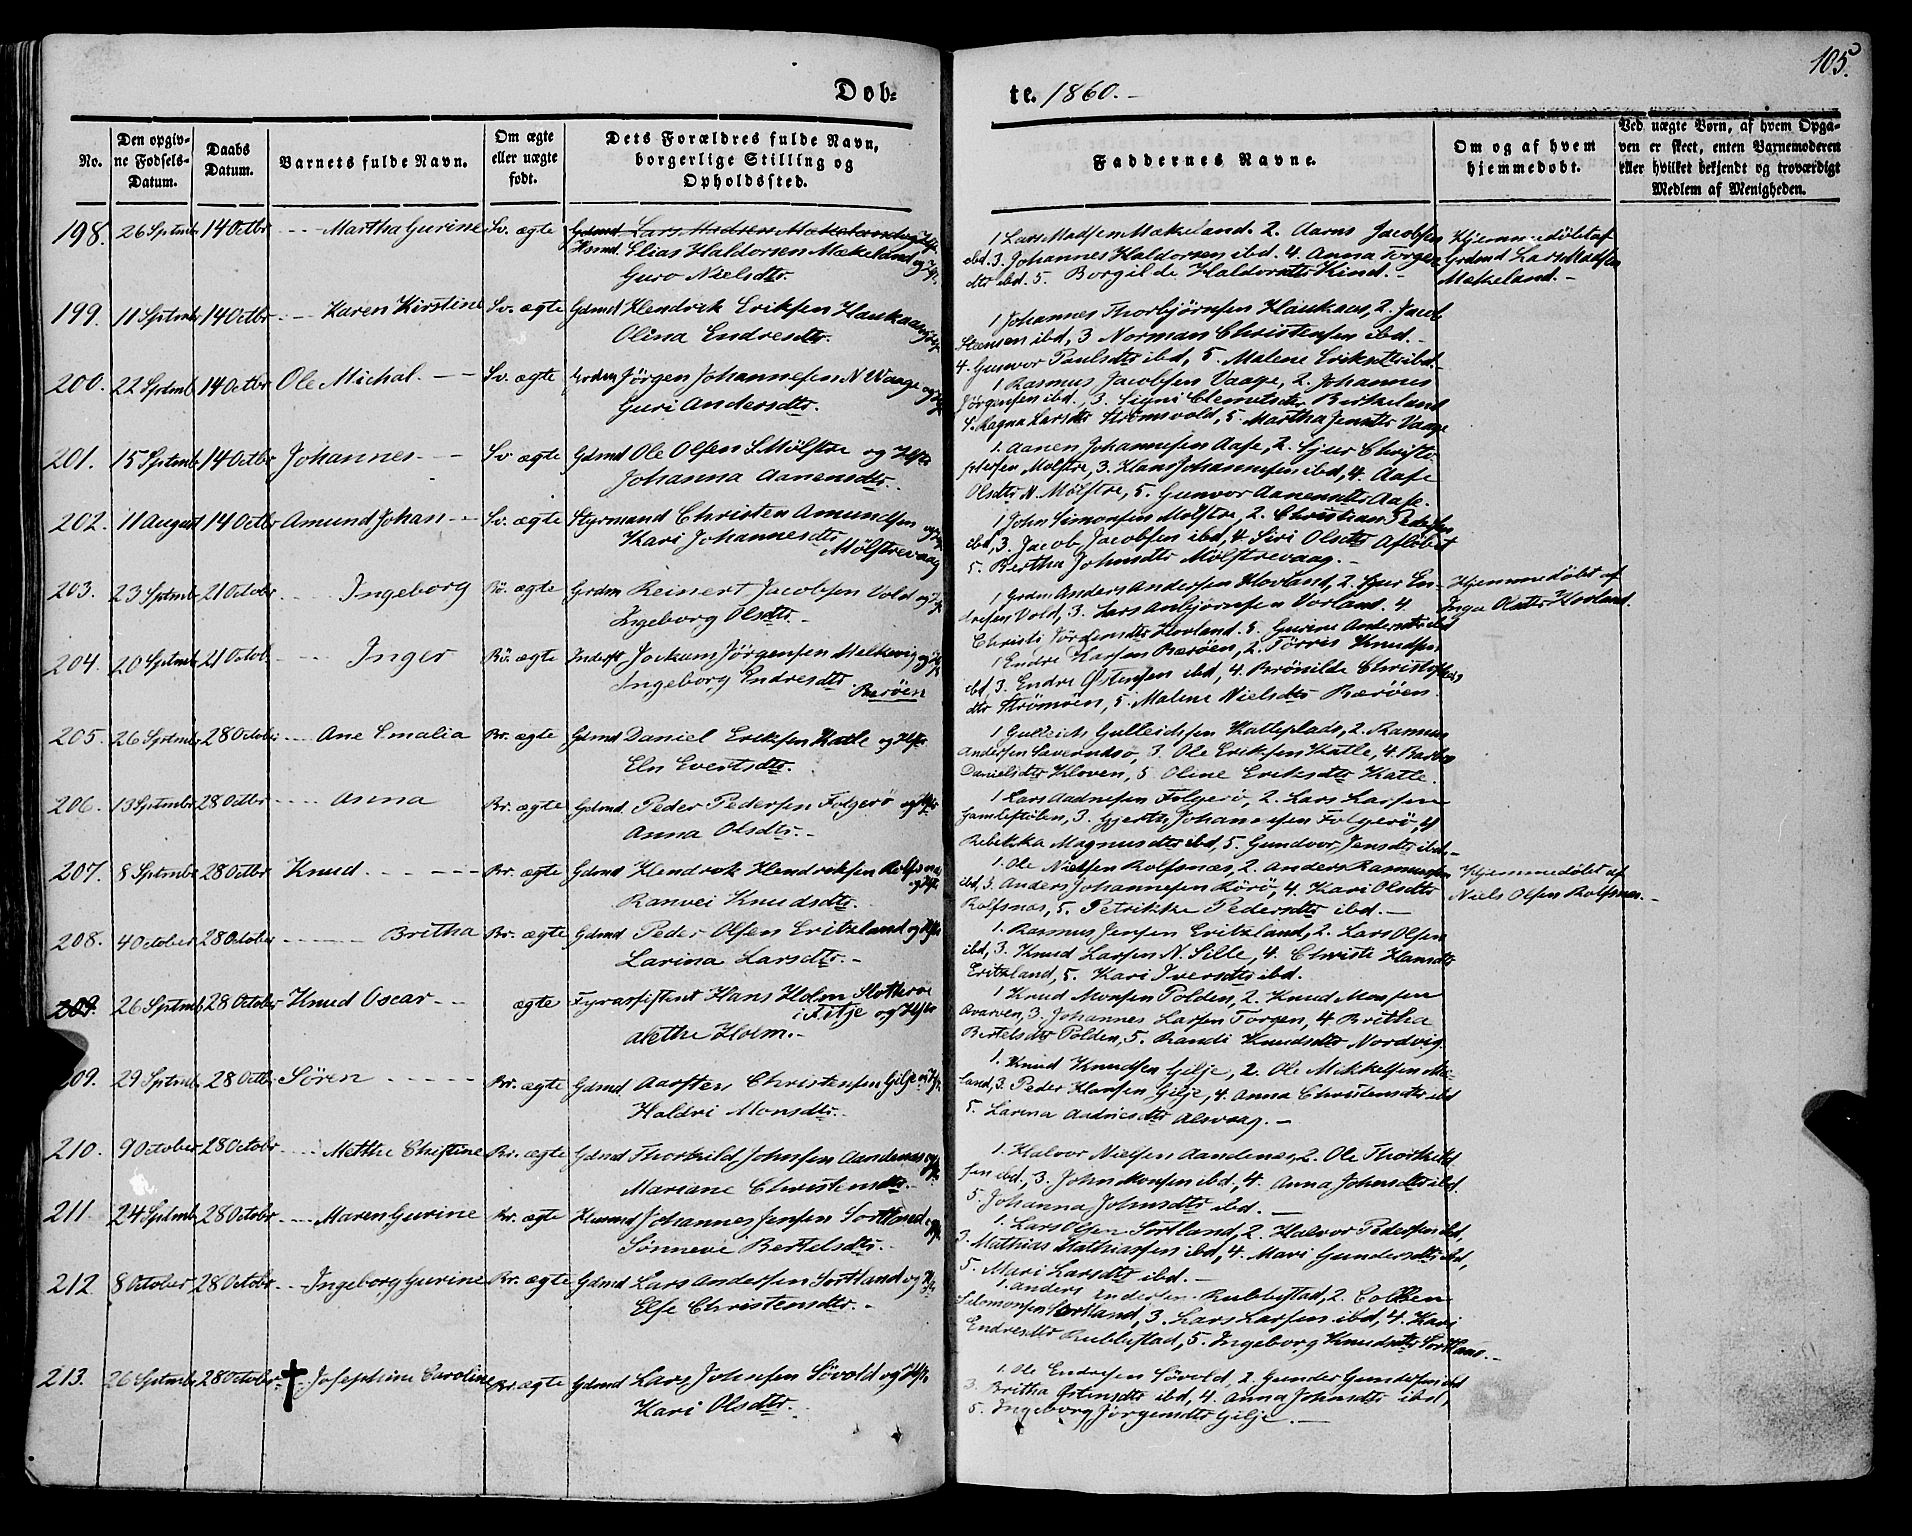 105.
Døb-
te. 1860.-
No.
Den opgiv-
ne Fødsels-
Datum.
Daabs
Datum.
Barnets fulde Navn.
Om ægte
eller uægte
født.
Dets Forældres fulde Navn,
borgerlige Stilling og
Opholdssted.
Faddernes Navne.
Om og af hvem
hjemmedøbt.
Ved uægte Børn, af hvem Opga-
ven er skeet, enten Barnemoderen
eller hvilket bekjendt og troværdigt
Medlem af Menigheden.
198. 26 Septmb 14 Octbr --- Martha Gurine Sv. ægte Gdmd Lars Madsen Mækeland og Hst
Husmd. Elias Haldorsen Mækeland og
Guro Nielsdtr.
1 Lars Madsen Mækeland. 2. Jacobsen
ibd. 3. Johannes Haldorsen ibd. 4. Anna Torgers
dtr ibd. 5. Borgilde Haldorsdtr
Hjemmedøbt af
Grdmd Lars Madsen
Mækeland.-
199. 11 Septmb 14 Octbr --- Karen Kirstine Sv. ægte Gdmd Hendrik Eriksen Haukaas og
Olina Endresdtr.
1 Johannes Thorbjørnsen Haukaas, 2. Jacob
Steensen ibd, 3 Norman Christensen ibd.
4. Gunvor Paulsdtr ibd, 5. Malene Eriksdtr ibd.
200. 22 Septmb 14 Octbr Ole Michal. -- Sv. ægte Grdm Jørgen Johannesen N Vaage og
Guri Andersdtr.
1. Rasmus Jacobsen Vaage, 2. Johannes
Jørgensen ibd., 3. Signi Clemetsdtr Birkeland
4. Ragna Larsdtr Strømsvold, 5 Martha Jensdtr Vaage
201. 15 Septmb 14 Octbr Johannes -- Sv. ægte Gdmd Ole Olsen S. Mølstre og Hst
Johanna Aanensdtr.
1. Aanen Johannesen Aase, 2. Sjur Christo
fersen Mølstre, 3. Hans Johannesen ibd, 4. Aase
Olsdtr N. Mølstre, 5. Gunvor Aanensdtr Aase.
202. 11 August 14 Octbr Amund Johan -- Sv. ægte Styrmand Christen Amundsen og
Kari Johannesdtr.
Mølstrevaag
1 John Simonsen Mølstre, 2. Christian Pedersen
ibd, 3. Jacob Jacobsen ibd, 4 Siri Olsdtr
5. Bertha Johnsdtr Mølstrevaag.-
203. 23 Septmb 21 Octobr --- Ingeborg Bö. ægte Grdm Reinert Jacobsen Vold og
Ingeborg Olsdtr.
1 Grdm Anders Andersen Hovland, 2. Sjur En-
dresen Vold, 3. Lars Anbjørnsen Vorland. 4
Christi Hovland. 5. Gurine Andersdtr ibd
Hjemmedøbt af
Inga Olsdtr Hovland.
204. 20 Septmb 21 Octob. --- Inger Bö. ægte Inderst Jockum Jørgensen Melkevig og
Ingeborg Endresdtr.
Barøen
1 Endre Hansen Bærøen, 2. Tørris Knudsen
ibd, 3. Endre Østensen ibd, 4. Brønilde Christophers
dtr Strømøen, 5. Malene Nielsdtr Bærøen.
205. 26 Septmb 28 Octobr --- Ane Emalia Br. ægte Gdmd Daniel Eriksen Katle og Hst
Eln Evertsdtr.
1 Gulleich Gulleichsen Katleplads, 2. Rasmus
Andersen, 3. Ole Eriksen Katle, 4.
Danielsdtr Kloven, 5 Oline Eriksdtr Katle.
206. 13 Septmb 28 Octbr ---- Anna Br. ægte Gdmd. Peder Pedersen Folgerø og Hst
Anna Olsdtr.-
1 Lars Aadnesen Folgerø, 2. Lars Larsen
3. Gjerth Johannesen Folgerø, 4
Rebekka Magnusdtr ibd, 5. Gundvor Jensdtr ibd.-
207. 8 Septmbr 28 Octbr Knud. ---- Br. ægte Gdmd Hendrik Hendriksen Rolfsnæs
og Hst
Ranvei Knudsdtr.
1. Ole Nielsen Rolfsnæs, 2. Anders Rasmussen
ibd, 3. Anders Johannesen Rørø, 4. Kari Olsdtr
Rolfsnæs, 5. Petrikke Pedersdtr ibd.-
Hjemmedøbt af
Niels Olsen Rolfsnæs.-
208. 4 October 28 October ---- Britha Br. ægte Gdmd Peder Olsen Eritzland og Hst
Larina Larsdtr.-
1. Rasmus Jensen Eritzland, 2. Lars Olsen
ibd, 3. Knud Larsen N. Sille, 4. Christe Hansdtr
Eritzland, 5. Kari Iversdtr ibd.
209. 26 Septmb 28 October Knud Oscar -- ægte Fyrassistent Hans Holm Slotterøe
i Fitje og Hst
Alethe Holm.-
1 Knud Monsen Polden, 2. Knud Monsen
3. Johannes Larsen Torgen, 4. Britha
Bertelsdtr Polden, 5. Randi Knudsdtr Nordvig.
209. 29 Septmb 28 Octbr Søren ---- Br. ægte Gdmd. Aarsten Christensen Gilje og
Haldri Monsdtr.
1. Knud Knudsen Gilje, 2. Ole Mikkelsen Mæ-
land, 3. Peder Hansen Gilje, 4. Anna Christensdtr ibd
5. Larina Aadnesdtr Alsvaag.-
210. 9 October 28 Octobr --- Metthe Christine Br. ægte Gdmd Thorkild Johnsen Aandenæs og
Mariane Christensdtr.-
1. Halvor Nielsen Aandenæs, 2. Ole Thorkild
sen ibd., 3. John Monsen ibd, 4. Anna Johnsdtr ibd.
5. Johanna Johnsdtr ibd.-
211 24 Septmb 28 Octobr --- Maren Gurine Br. ægte Husmd Johannes Jensen Sortland og
Sønneve Bertelsdtr.-
1. Lars Olsen Sortland, 2. Halvor Pedersen ibd,
3. Mathias Mathiassen ibd, 4. Mari Gundersdtr ibd,
5. Mari Larsdtr ibd.-
212 8 October 28 Octobr --- Ingeborg Gurine Br. ægte Gdmd Lars Andersen Sortland og
Else Christensdtr.-
1. Anders Endresen Rubbestad, 2. Colben
Salomonsen Sortland, 3. Lars Larsen ibd, 4. Kari
Endresdtr Rubbestad, 5. Ingeborg Knudsdtr Sortland.-
213. 26 Septmb 28 October --- Josephine Caroline Br. ægte Gdmd Lars Johnsen Søvold og Hst
Kari Olsdtr.
1. Ole Endresen Søvold, 2. Gunder Gundersen ibd
3. Britha Østensdtr ibd, 4. Anna Johnsdtr ibd,
5. Ingeborg Jørgensdtr Gilje.-